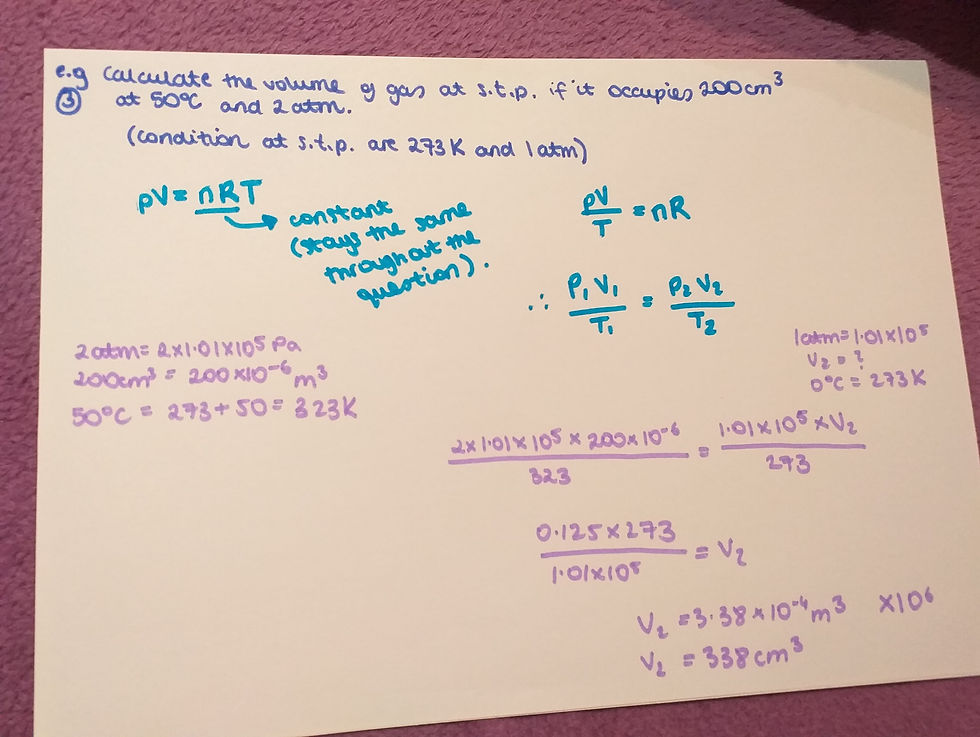 e.g Calculate the volume of gas at s.t.p. if it occupies 200cm³
③ at 50°C and 2 atm.
(condition at s.t.p. are 273K and 1atm)
pV = nRT
constant
(stays the same
throughout the
question).
pV/T = nR
∴ P₁V₁/T₁ = P₂V₂/T₂
2atm = 2x1.01x10⁵ Pa
200cm³ = 200x10⁻⁶ m³
50°C = 273+50 = 323K
1atm = 1.01x10⁵
V₂ = ?
0°C = 273K
2x1.01x10⁵ x 200x10⁻⁶/323 = 1.01x10⁵ x V₂/273
0.125x273/1.01x10⁵ = V₂
V₂ = 3.38x10⁻⁴ m³ x10⁶
V₂ = 338cm³